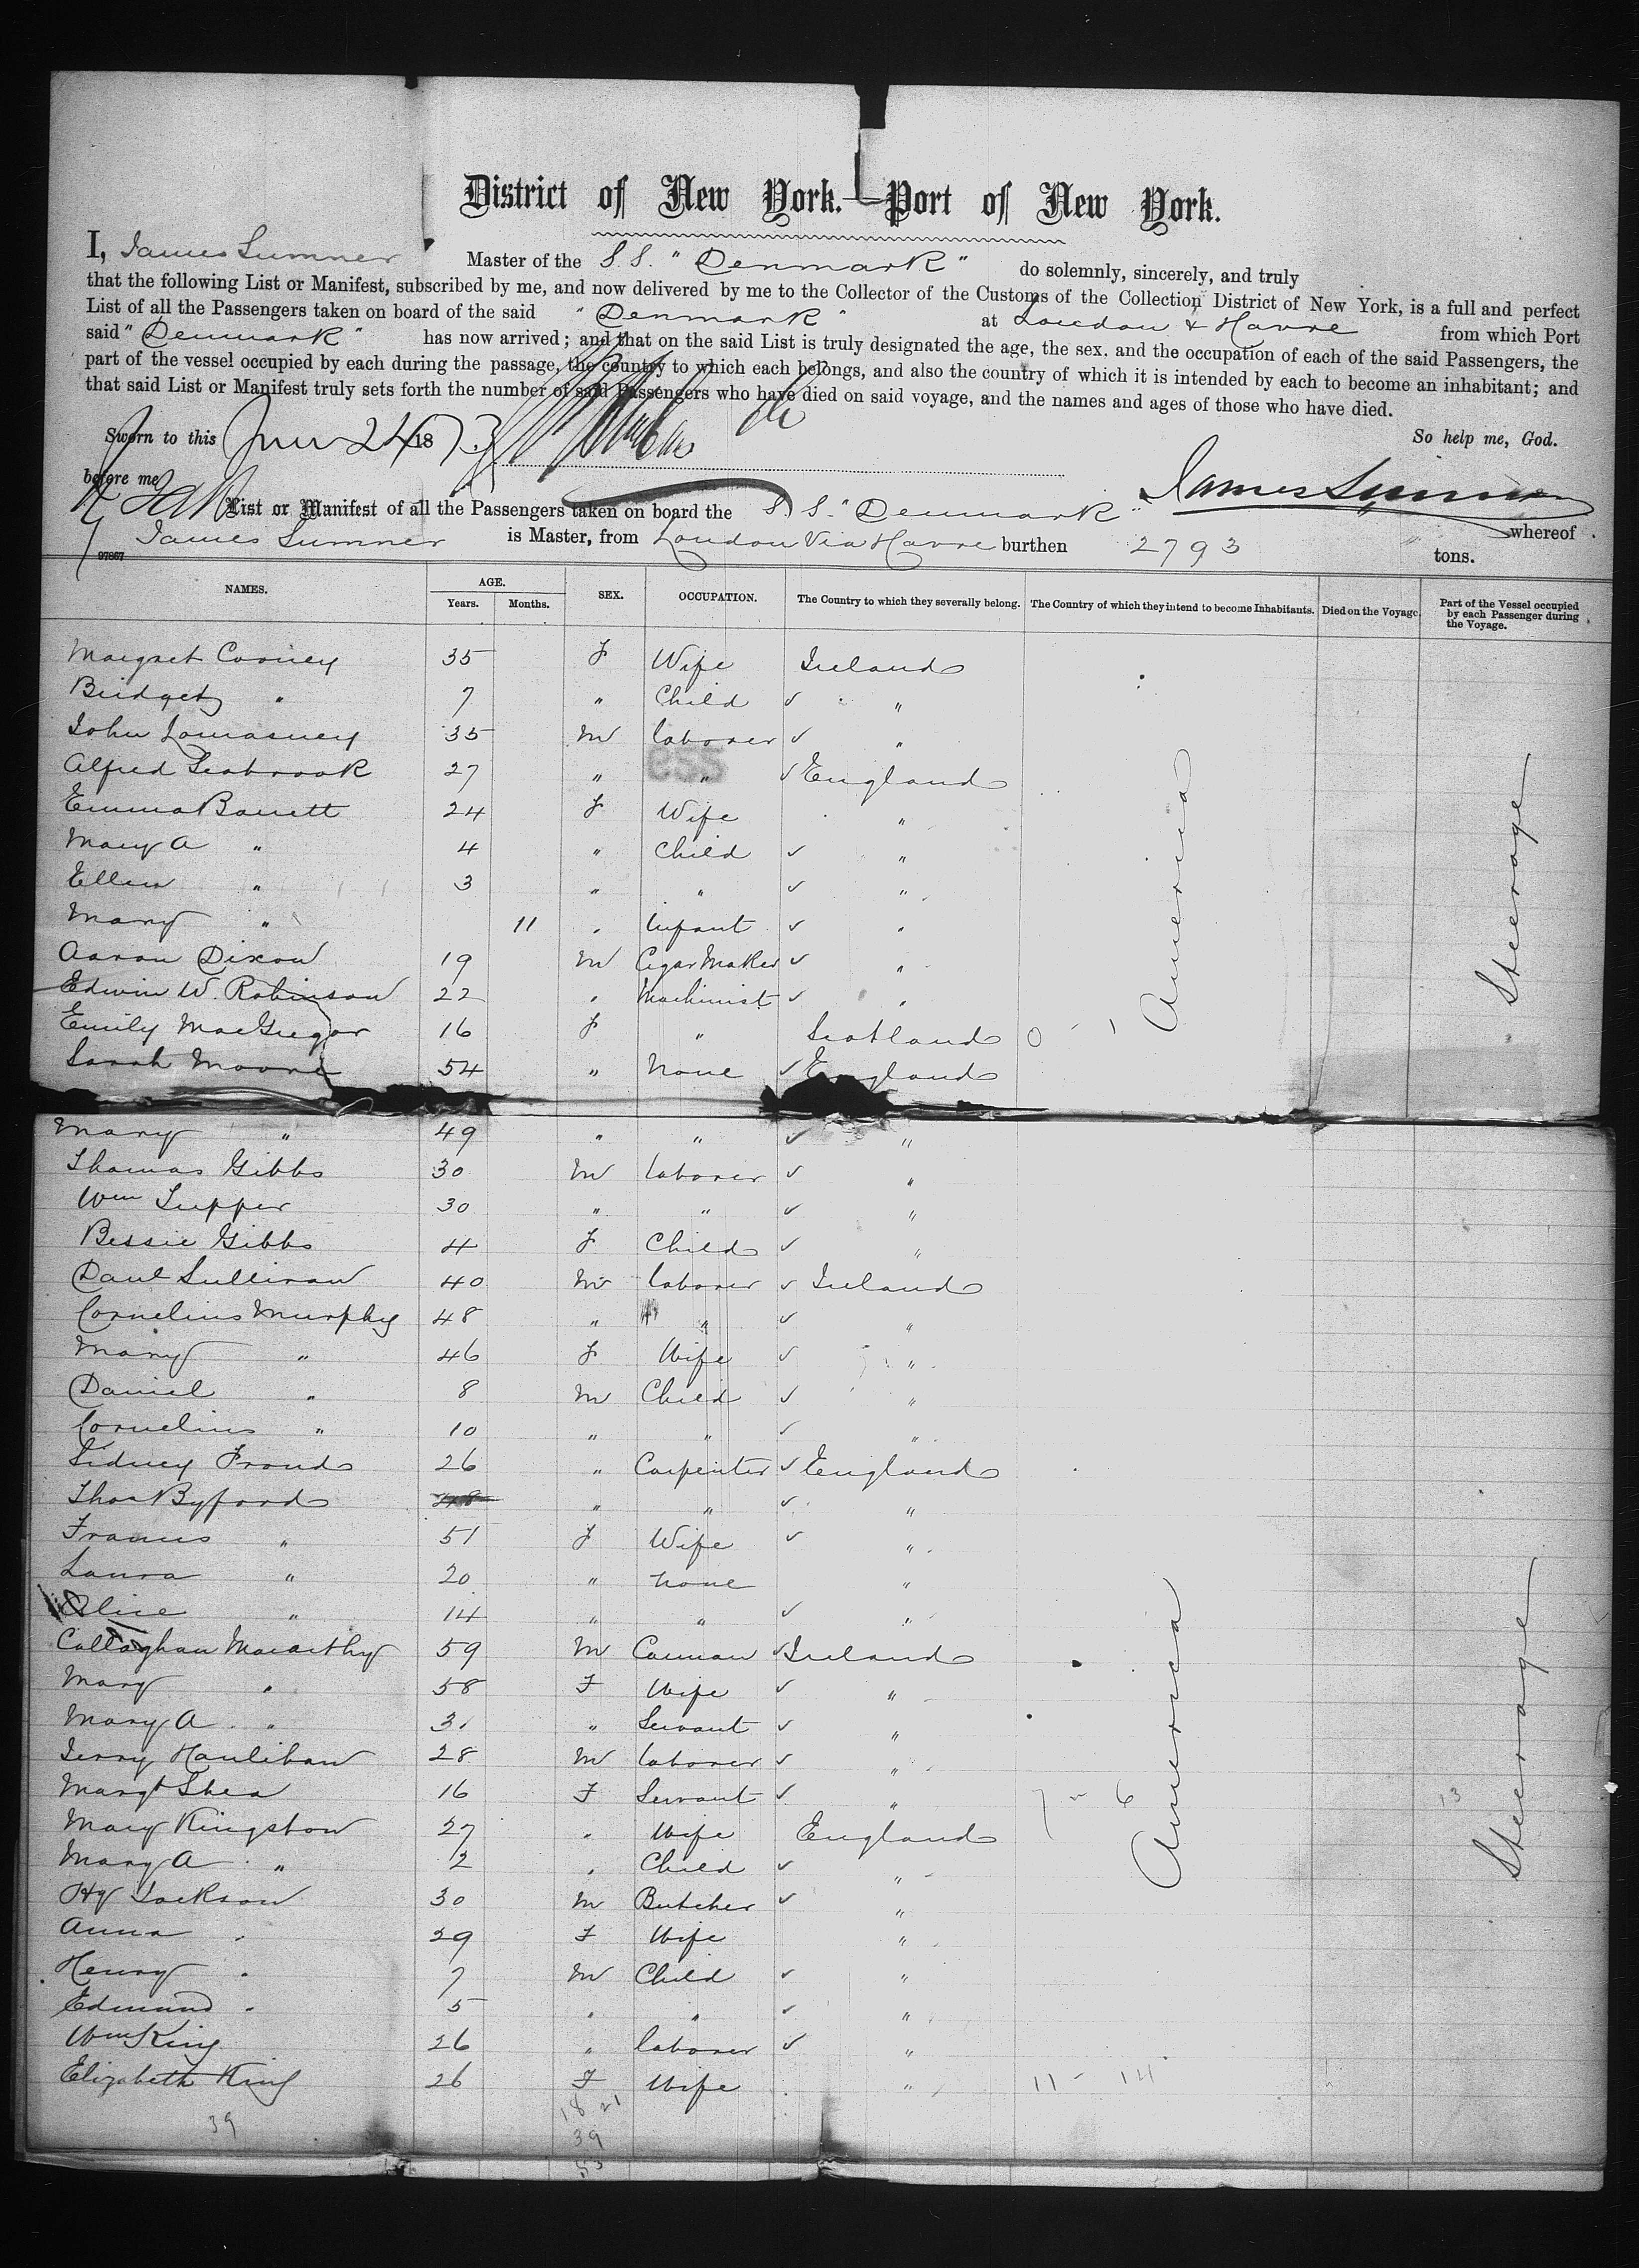 District of New York. Port of New York.
I, James Sumner Master of the S.S. "Denmark" do solemnly, sincerely, and truly
that the following List or Manifest, subscribed by me, and now delivered by me to the Collector of the Customs of the Collection District of New York, is a full and perfect
List of all the Passengers taken on board of the said "Denmark" at London & Havre from which Port
said "Denmark" has now arrived; and that on the said List is truly designated the age, the sex, and the occupation of each of the said Passengers, the
part of the vessel occupied by each during the passage, the country to which each belongs, and also the country of which it is intended by each to become an inhabitant; and
that said List or Manifest truly sets forth the number of said Passengers who have died on said voyage, and the names and ages of those who have died.
Sworn to this 24 1873 So help me, God.
before me James Sumner
List or Manifest of all the Passengers taken on board the S.S. "Denmark" whereof
James Sumner is Master, from London Via Havre burthen 2793 tons.
97867
NAMES. AGE. Years. Months. SEX. OCCUPATION. The Country to which they severally belong. The Country of which they intend to become Inhabitants. Died on the Voyage. Part of the Vessel occupied by each Passenger during the Voyage.
Margret Cooney 35 F Wife Ireland
Bridget " 7 " Child "
John Lomasney 35 M laborer "
Alfred Seabrook 27 " " England
Emma Barrett 24 F Wife "
Mary A " 4 " Child "
Ellen " 3 " " "
Mary " 11 " Infant "
Aaron Dixon 19 M Cigar Maker "
Edwin W. Robinson 22 " Machinist "
Emily MacGregor 16 F " Scotland 0 - 1
Sarah Moore 54 " None England
America Steerage
Mary " 49 " " "
Thomas Gibbs 30 M laborer "
Wm Tupper 30 " " "
Bessie Gibbs 4 F Child "
Danl Sullivan 40 M laborer Ireland
Cornelius Murphy 48 " " "
Mary " 46 F Wife "
Daniel " 8 M Child "
Cornelius " 10 " " "
Sidney Froud 26 " Carpenter England
Thos Byford 48 " " "
Frances " 51 F Wife "
Laura " 20 " None "
Alice " 14 " " "
Callaghan Macarthy 59 M Carman Ireland
Mary " 58 F Wife "
Mary A " 31 " Servant "
Jerry Haulihan 28 M laborer "
Margt Shea 16 F Servant " 7 - 6 13
Mary Kingston 27 " Wife England
Mary A " 2 " Child "
Hy Jackson 30 M Butcher "
Anna " 29 F Wife "
Henry " 7 M Child "
Edmund " 5 " " "
Wm King 26 " laborer "
Elizabeth King 26 F Wife " 11 - 14
America Steerage
39 18 21
39
53